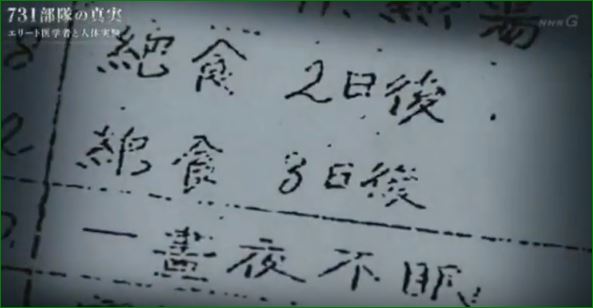 731部隊の真実
エリート医学者と人体実験
NHK G
絶食 2日後
絶食 3日後
一晝夜不眠